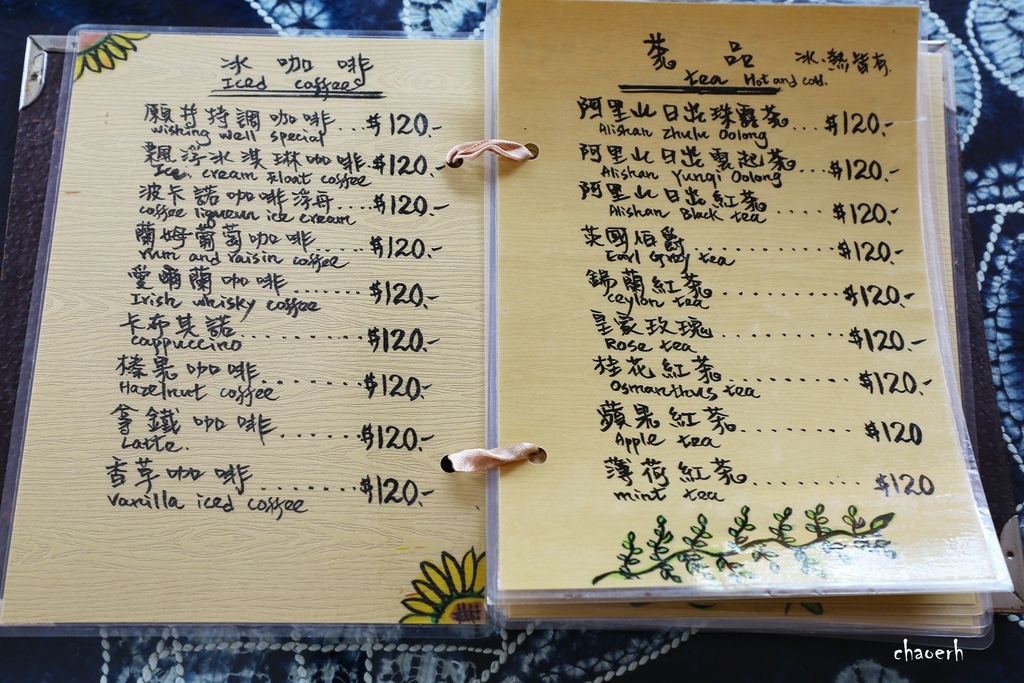 冰咖啡
Iced coffee
願井特調咖啡...$120.-
wishing well special
飄浮冰淇琳咖啡.$120.-
Ice cream float coffee
波卡諾咖啡浮舟 $120.-
coffee liqueun ice cream
蘭姆葡萄咖啡......$120.-
rum and raisin coffee
愛爾蘭咖啡.........$120.-
Irish whisky coffee
卡布其諾.............$120.-
cappuccino
榛果咖啡...........$120.-
Hazelnut coffee
拿鐵咖啡.........$120.-
Latte.
香草咖啡..........$120.-
vanilla iced coffee
茶品 冰.熱皆有.
tea Hot and cold.
阿里山日出珠露茶...$120.-
Alishan Zhulu Oolong
阿里山日出雲起茶...$120.-
Alishan Yunqi Oolong
阿里山日出紅茶......$120.-
Alishan Black tea
英國伯爵............$120.-
Earl Grey tea
錫蘭紅茶............$120.-
ceylon tea
皇家玫瑰............$120.-
Rose tea
桂花紅茶............$120.-
Osmanthus tea
蘋果紅茶...........$120
Apple tea
薄荷紅茶..........$120
mint tea
chaoerh